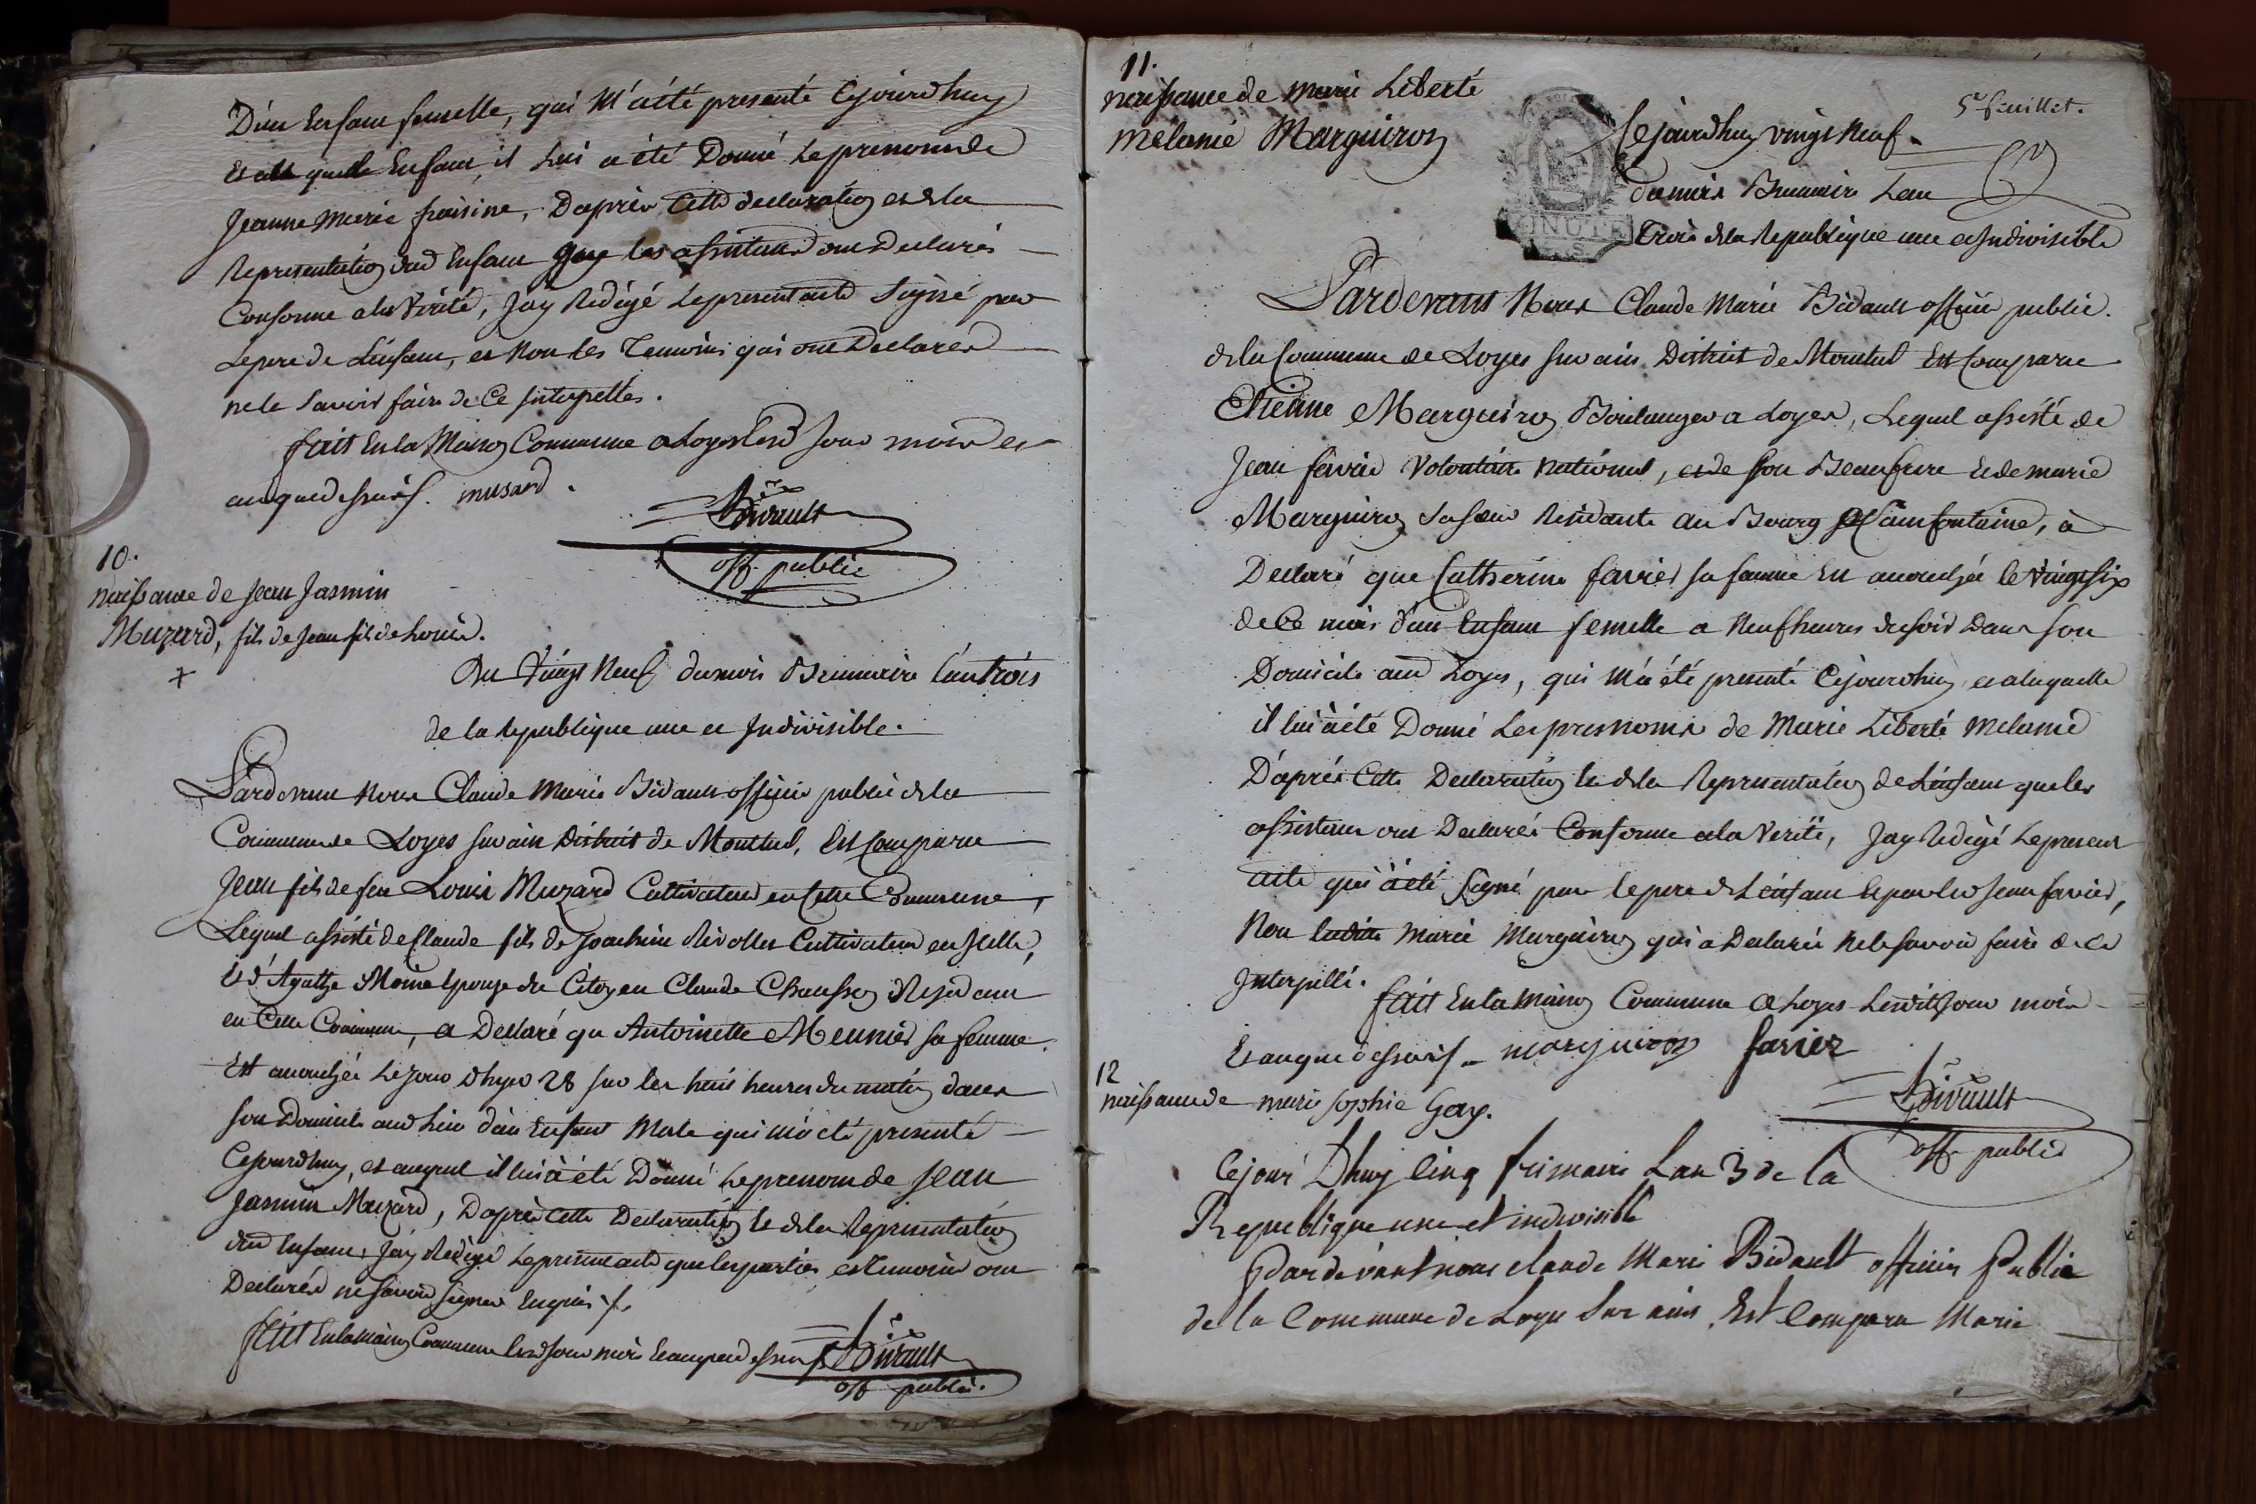 D'un Enfant femelle, qui M'a été presenté Cejourdhuy
Et à laquelle Enfant, il Lui a été Donné Le prenom de
Jeanne Marie fraisine, D'après Cette declaration et de la
Representation dud Enfant que les assistans ont Declarés
Conforme a la Vérité, J'ay Redigé Le present acte Signé par
Le pere de L'enfant, et Non les Temoins qui ont Declarer
ne le Savoir faire de Ce Interpellés.
fait En la Maison Commune a Loyes Led Jour mois et
an que dessus. musard.
Bidault
off. public
10.
naissance de Jean Jasmin
Muzard, fils de Jean fils de Louis.
Du Vingt Neuf du mois Brumaire l'an trois
de la Republique une et Indivisible.
Pardevant Nous Claude Marie Bidault officier public de la
Commune de Loyes sur ain District de Montluel, Est Comparu
Jean fils de feu Louis Muzard Cultivateur en Cette Commune,
Lequel assisté de Claude fils de Joachim Rivollet Cultivateur en Icelle,
Et d'Agathe Moine Epouze du Citoyen Claude Chausson Residant
en Cette Commune, a Declaré qu'Antoinette Meunier sa femme
Est accouchée Le jour d'hyer 28 sur les huit heures du matin dans
son Domicile aud Lieu d'un Enfant Male qui m'a été presenté
Cejourdhuy, et auquel il lui a été Donné Le prenom de Jean
Jasmin Muzard, D'après Cette Declaration Et de la Representation
dud Enfant, J'ay Redigé Le present acte que les parties et Temoins ont
Declarés ne Savoir Signer Enquis
fait En la Maison Commune led Jour mois Et an que dessus Bidault
off public.
11.
naissance de Marie Liberté
Mélanie Marguiron
5e feuillet.
Cejourdhuy vingt Neuf
du mois Brumaire L'an
Trois de la Republique une et Indivisible
Pardevant Nous Claude Marie Bidault officier public.
de la Commune de Loyes sur ain District de Montluel Est Comparu
Etienne Marguiron Boulanger a Loyes, Lequel assisté de
Jean favier Volontaire National, et de son Beaufrere Et de marie
Marguiron Sa Soeur Residante au Bourg fontaine, à
Declaré que Catherine favier sa femme Est accouchée le Vingt six
de Ce mois d'un Enfant femelle a Neuf heures du soir Dans son
Domicile aud Loyes, qui M'a été presenté Cejourdhuy, et a laquelle
il lui a été Donné Les prenoms de Marie Liberté Melanie
D'après Cette Declaration Et de la Representation de L'enfant que les
assistans ont Declarés Conforme a la Verité, J'ay Redigé Le present
acte qui a été Signé par le pere de L'enfant Et par led Jean favier,
Non ladite Marie Marguiron qui a Declarée ne le Savoir faire de ce
Interpellé.
fait En la Maison Commune a Loyes Lesdit Jour mois
Et an que dessus marguiron favier
Bidault
off public
12
naissance de marie sophie Gay.
Cejour Dhuy Cinq frimaire Lan 3 de la
Republique une et indivisible
Pardevant nous claude Marie Bidault officier Public
de la Commune de Loyes Sur ain, Est Comparu Marie